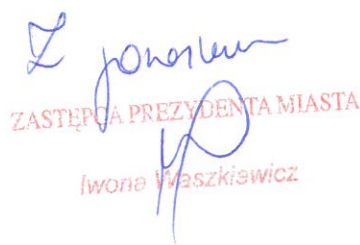 Z poważaniem
ZASTĘPCA PREZYDENTA MIASTA
Iwona Waszkiewicz